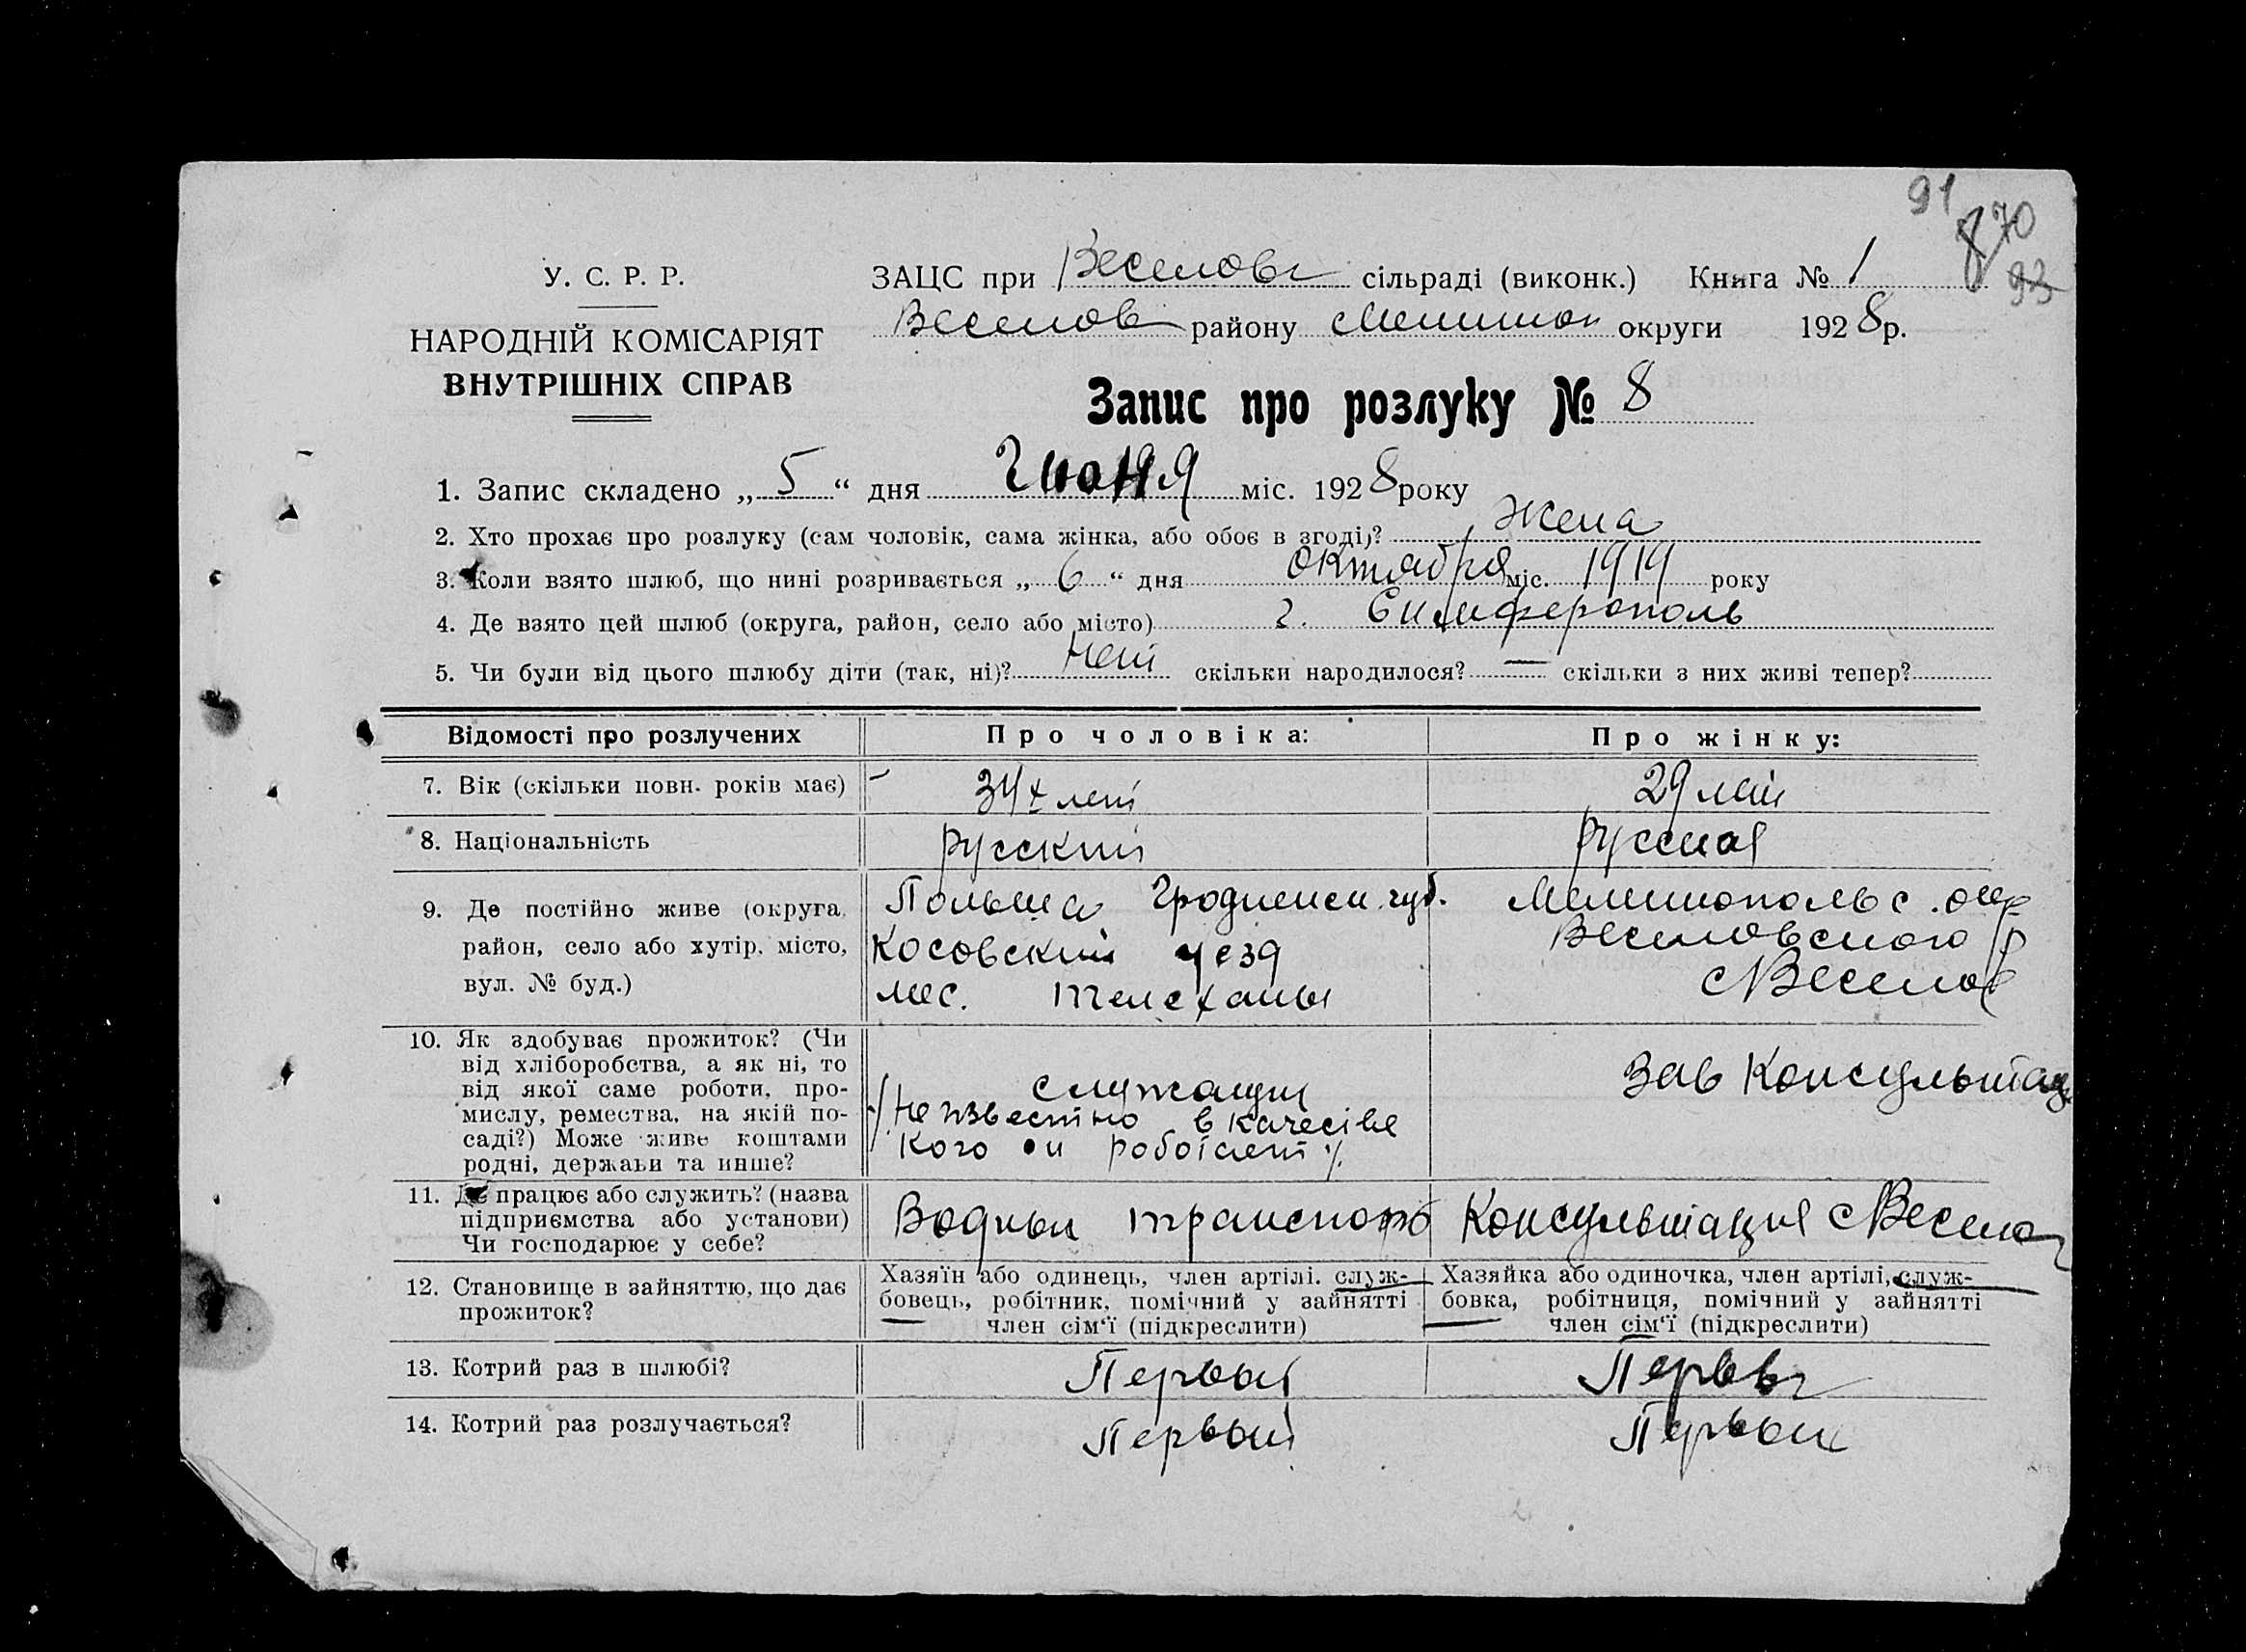 91
70
93
У. С. Р. Р.
НАРОДНІЙ КОМІСАРІЯТ
ВНУТРІШНІХ СПРАВ
ЗАЦС при Веселовс сільраді (виконк.) Книга № 1
Веселов району Мелитоп округи 1928 р.
Запис про розлуку № 8
1. Запис складено „ 5 “ дня Июня міс. 1928 року
2. Хто прохає про розлуку (сам чоловік, сама жінка, або обоє в згоді)? Жена
3. Коли взято шлюб, що нині розривається „ 6 “ дня октября міс. 1919 року
4. Де взято цей шлюб (округа, район, село або місто) г. Симферополь
5. Чи були від цього шлюбу діти (так, ні)? Нет скільки народилося? — скільки з них живі тепер?
Відомості про розлучених Про чоловіка: Про жінку:
7. Вік (скільки повн. років має) 34х лет 29 лет
8. Національність русский русская
9. Де постійно живе (округа, Польша Гродненск. губ. Мелитопольс. окр
район, село або хутір, місто, Косовский уезд Веселовского р
вул. № буд.) мес. Телеханы с Веселое
10. Як здобуває прожиток? (Чи
від хліборобства, а як ні, то Зав Консультац
від якої саме роботи, про- служащий
мислу, ремества, на якій по- Не известно в качестве
саді?) Може живе коштами кого он работает
родні, держави та инше?
11. Де працює або служить? (назва
підприємства або установи) Водный транспорт Консультация с Веселое
Чи господарює у себе?
12. Становище в зайняттю, що дає Хазяїн або одинець, член артілі, служ- Хазяйка або одиночка, член артілі, служ-
прожиток? бовець, робітник, помічний у зайнятті бовка, робітниця, помічний у зайнятті
член сім'ї (підкреслити) член сім'ї (підкреслити)
13. Котрий раз в шлюбі? Первый Первый
14. Котрий раз розлучається? Первый Первый